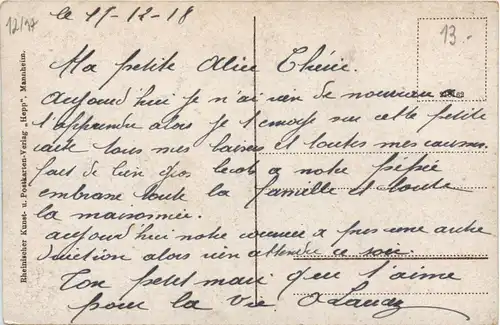 12/37
le 15-12-18
13.-
Ma petite Alice Chérie.
Aujourd'hui je n'ai rien de nouveau a
t'apprendre alors je t'envoye sur cette petite
carte tous mes baisers et toutes mes caresses
fait de bien gros becots a notre fifi
embrasse toute la famille et toute
la maisonnée.
aujourd'hui notre courrier a pris une autre
direction alors rien attendre ce soir.
Ton petit mari qui t'aime
pour la vie.
Rheinischer Kunst- u. Postkarten-Verlag „Hepp", Mannheim.